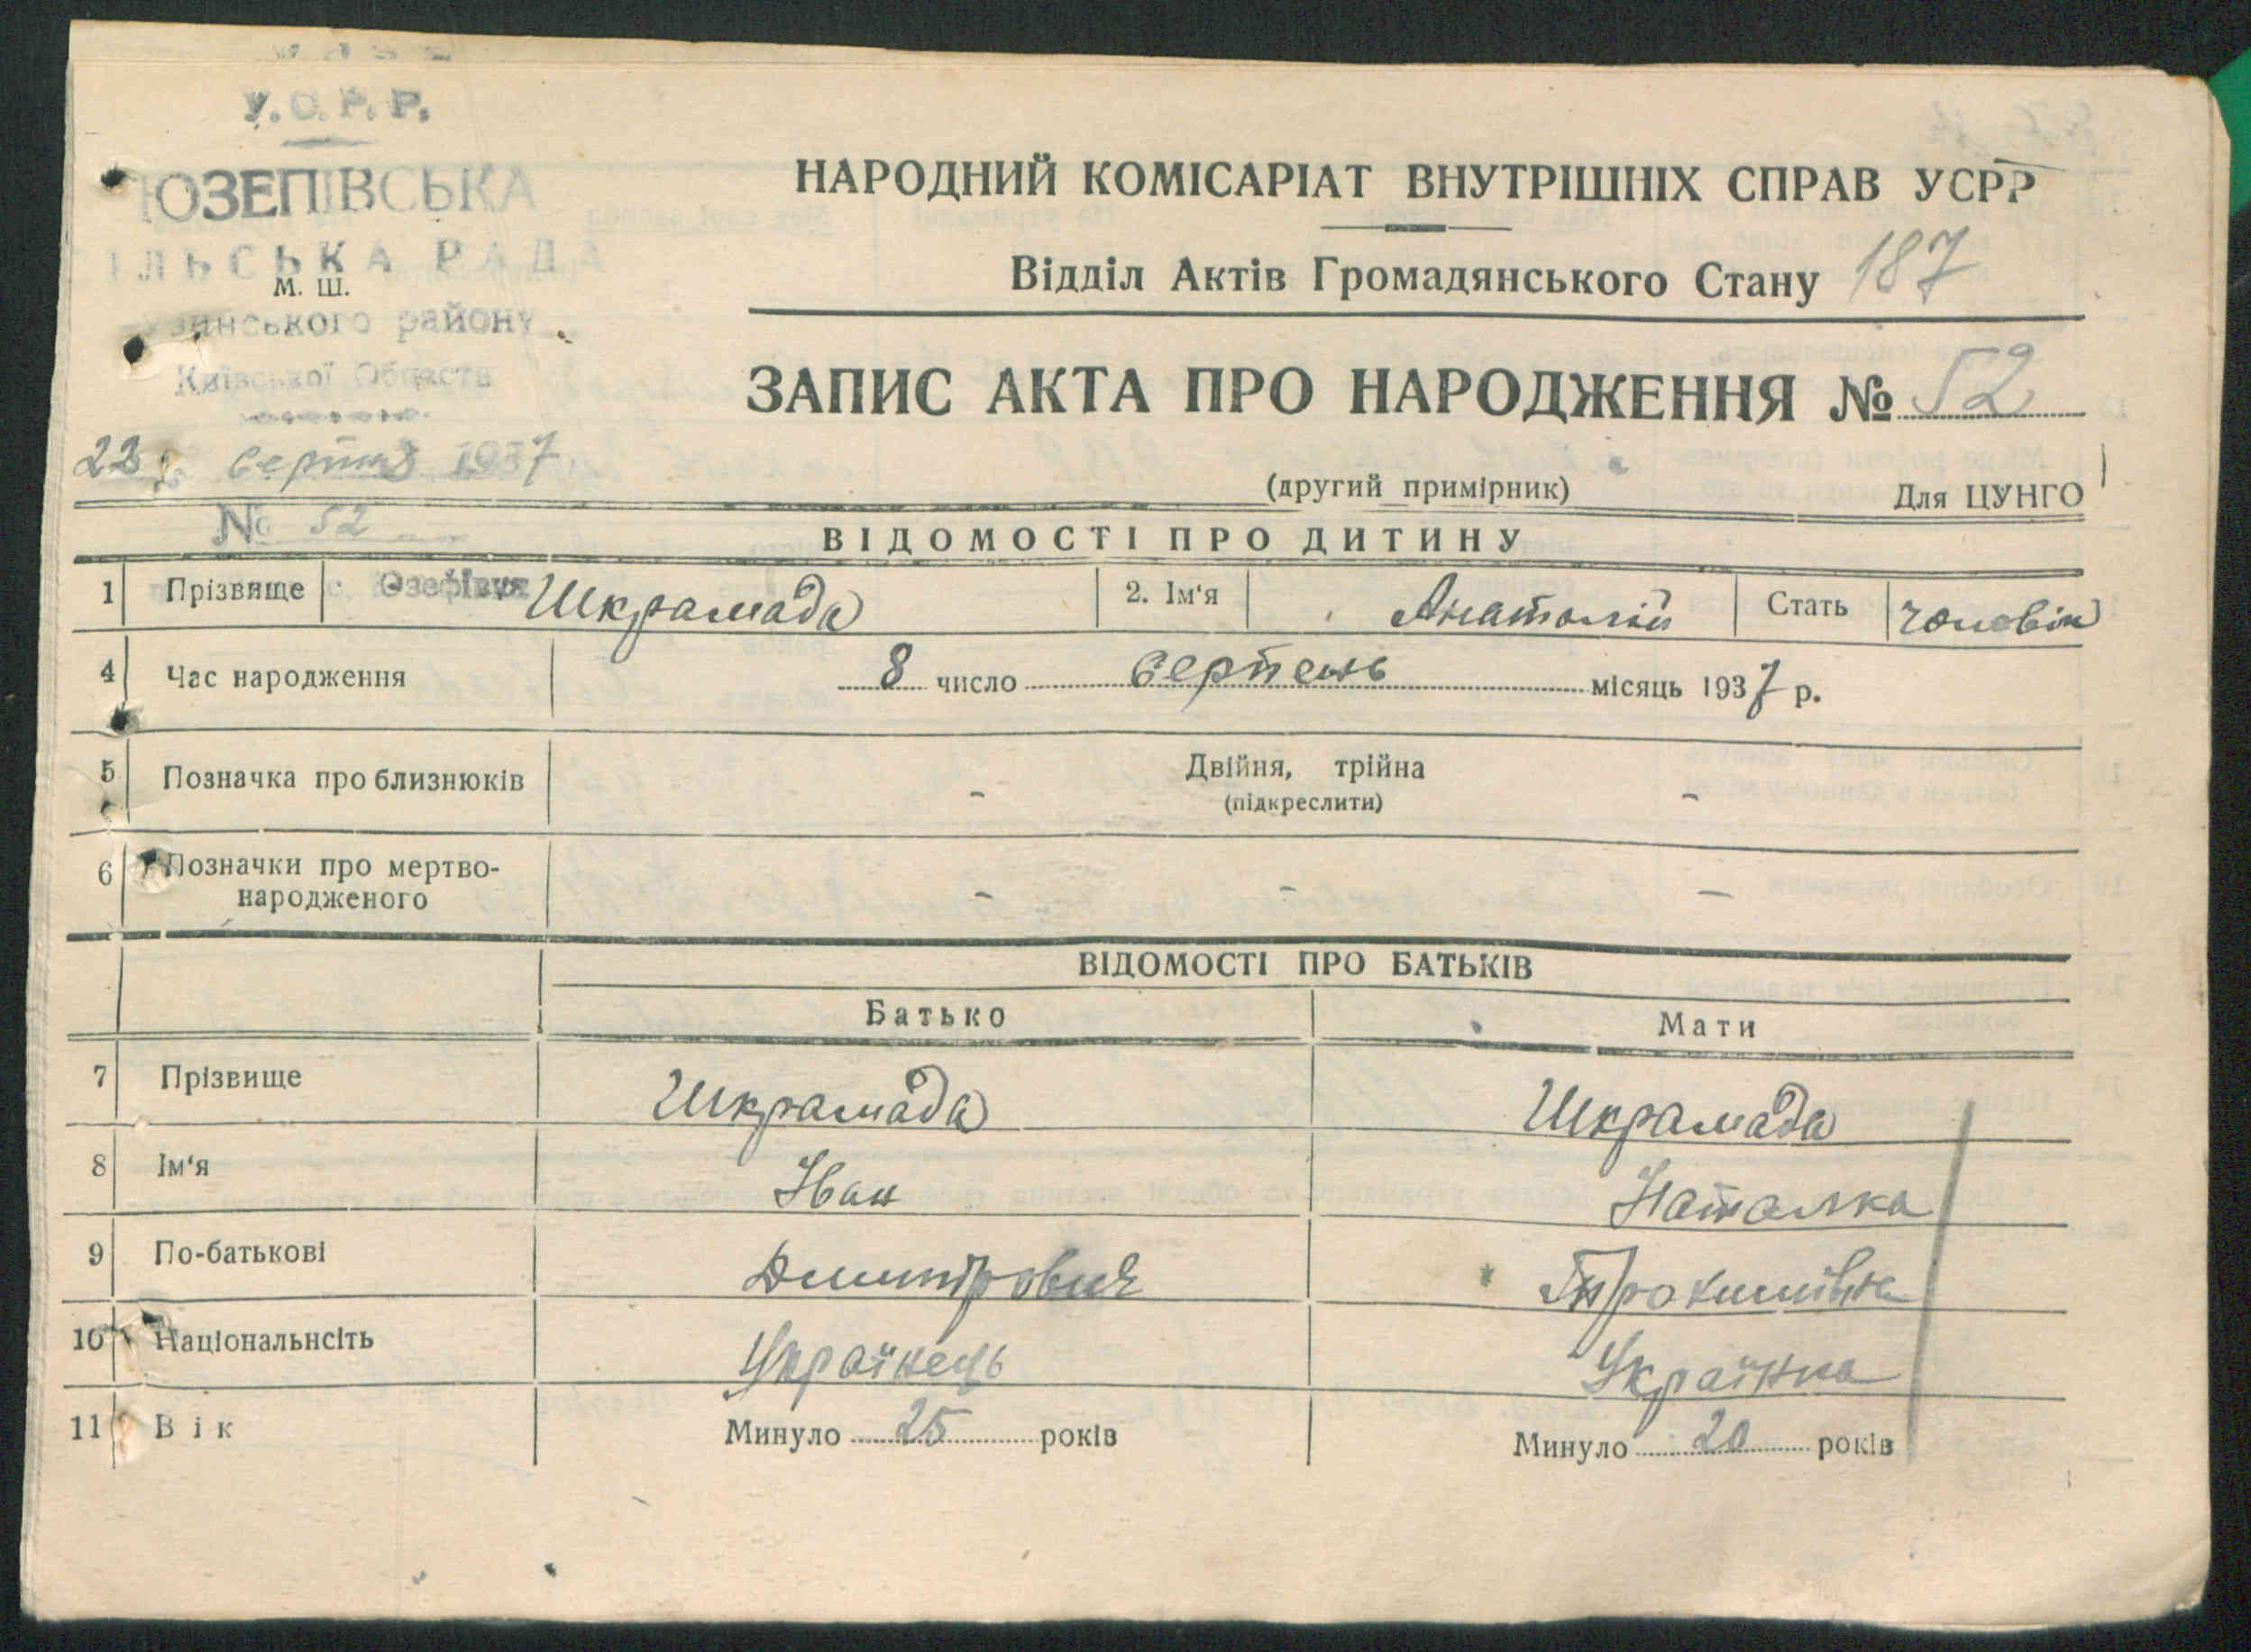 У.С.Р.Р.
ЮЗЕПІВСЬКА
ІЛЬСЬКА РАДА
М. Ш.
зинського району
Київської Области
23 серпня 1937
№ 52
НАРОДНИЙ КОМІСАРІАТ ВНУТРІШНІХ СПРАВ УСРР
Відділ Актів Громадянського Стану 187
ЗАПИС АКТА ПРО НАРОДЖЕННЯ № 52
(другий примірник) Для ЦУНГО
ВІДОМОСТІ ПРО ДИТИНУ
1 Прізвище с. Юзефівка Шкрамада 2. Ім'я Анатолій Стать чоловік
4 Час народження 8 число серпень місяць 1937 р.
5 Позначка про близнюків - Двійня, трійна -
(підкреслити)
6 Позначки про мертво-
народженого - - -
ВІДОМОСТІ ПРО БАТЬКІВ
Батько Мати
7 Прізвище Шкрамада Шкрамада
8 Ім'я Іван Наталка
9 По-батькові Димитрович
10 Національнсіть Українець Українка
11 Вік Минуло 25 років Минуло 20 років